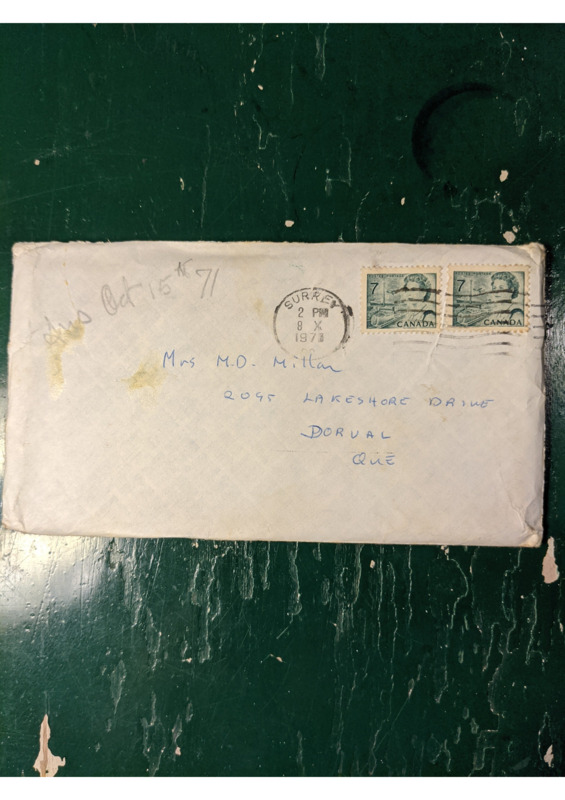 Ans Oct 15th 71
SURREY
2 PM
8 X
1971
7
CANADA
7
CANADA
Mrs M.D. Millar
2095 LAKESHORE DRIVE
DORVAL
QUE